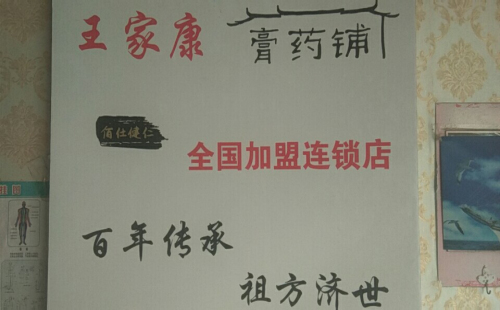 王家康 膏药铺
佰仕健仁
全国加盟连锁店
百年传承
祖方济世